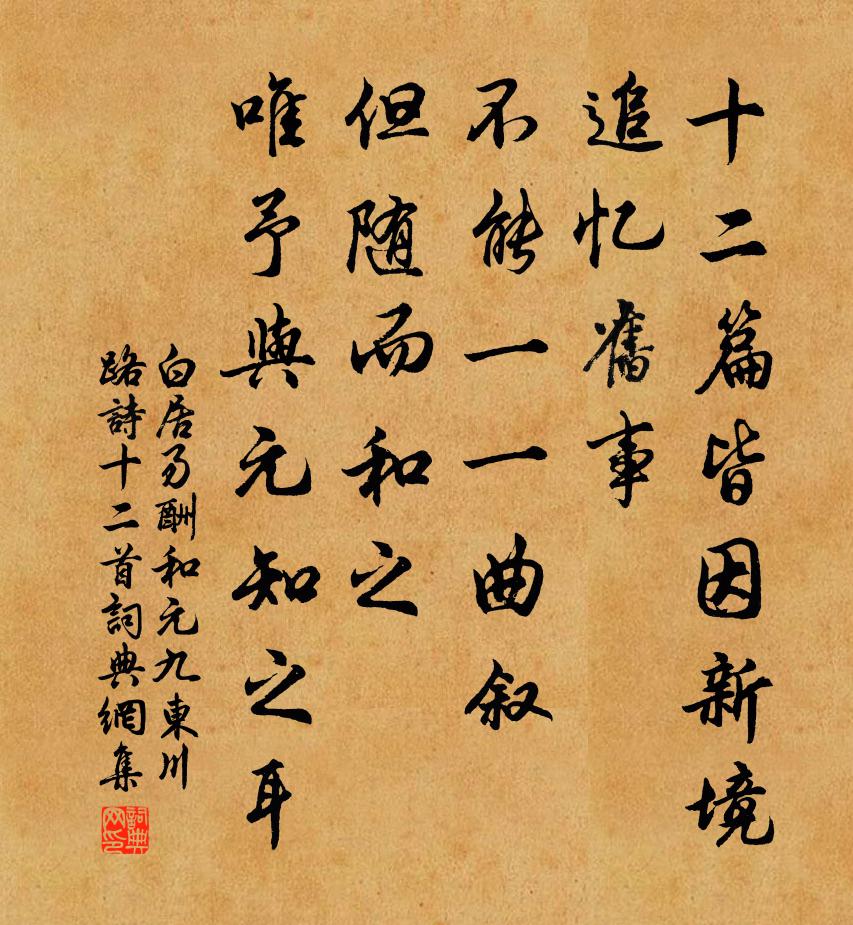 十二篇皆因新境
追忆舊事
不能一一曲叙
但随而和之
唯予與元知之耳
白居易酬和元九東川
路詩十二首詞典網集
詞典网印